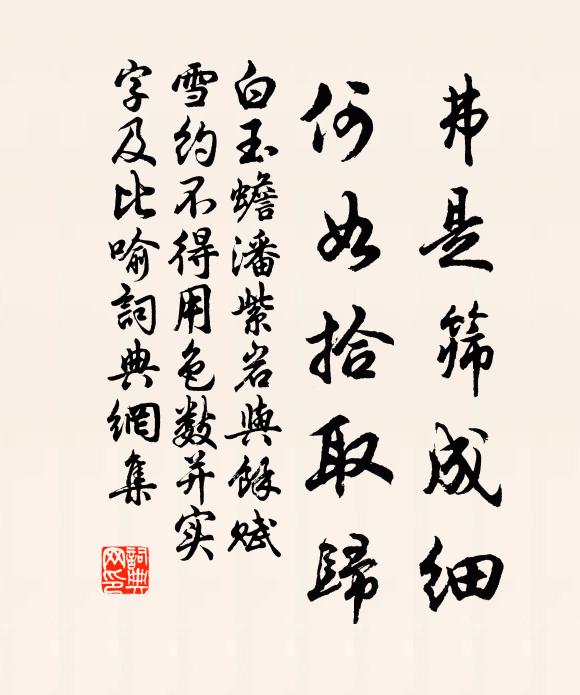 弗是筛成细
何如拾取歸
白玉蟾潘紫岩與餘賦
雪約不得用色數并实
字及比喻詞典網集
詞典网印